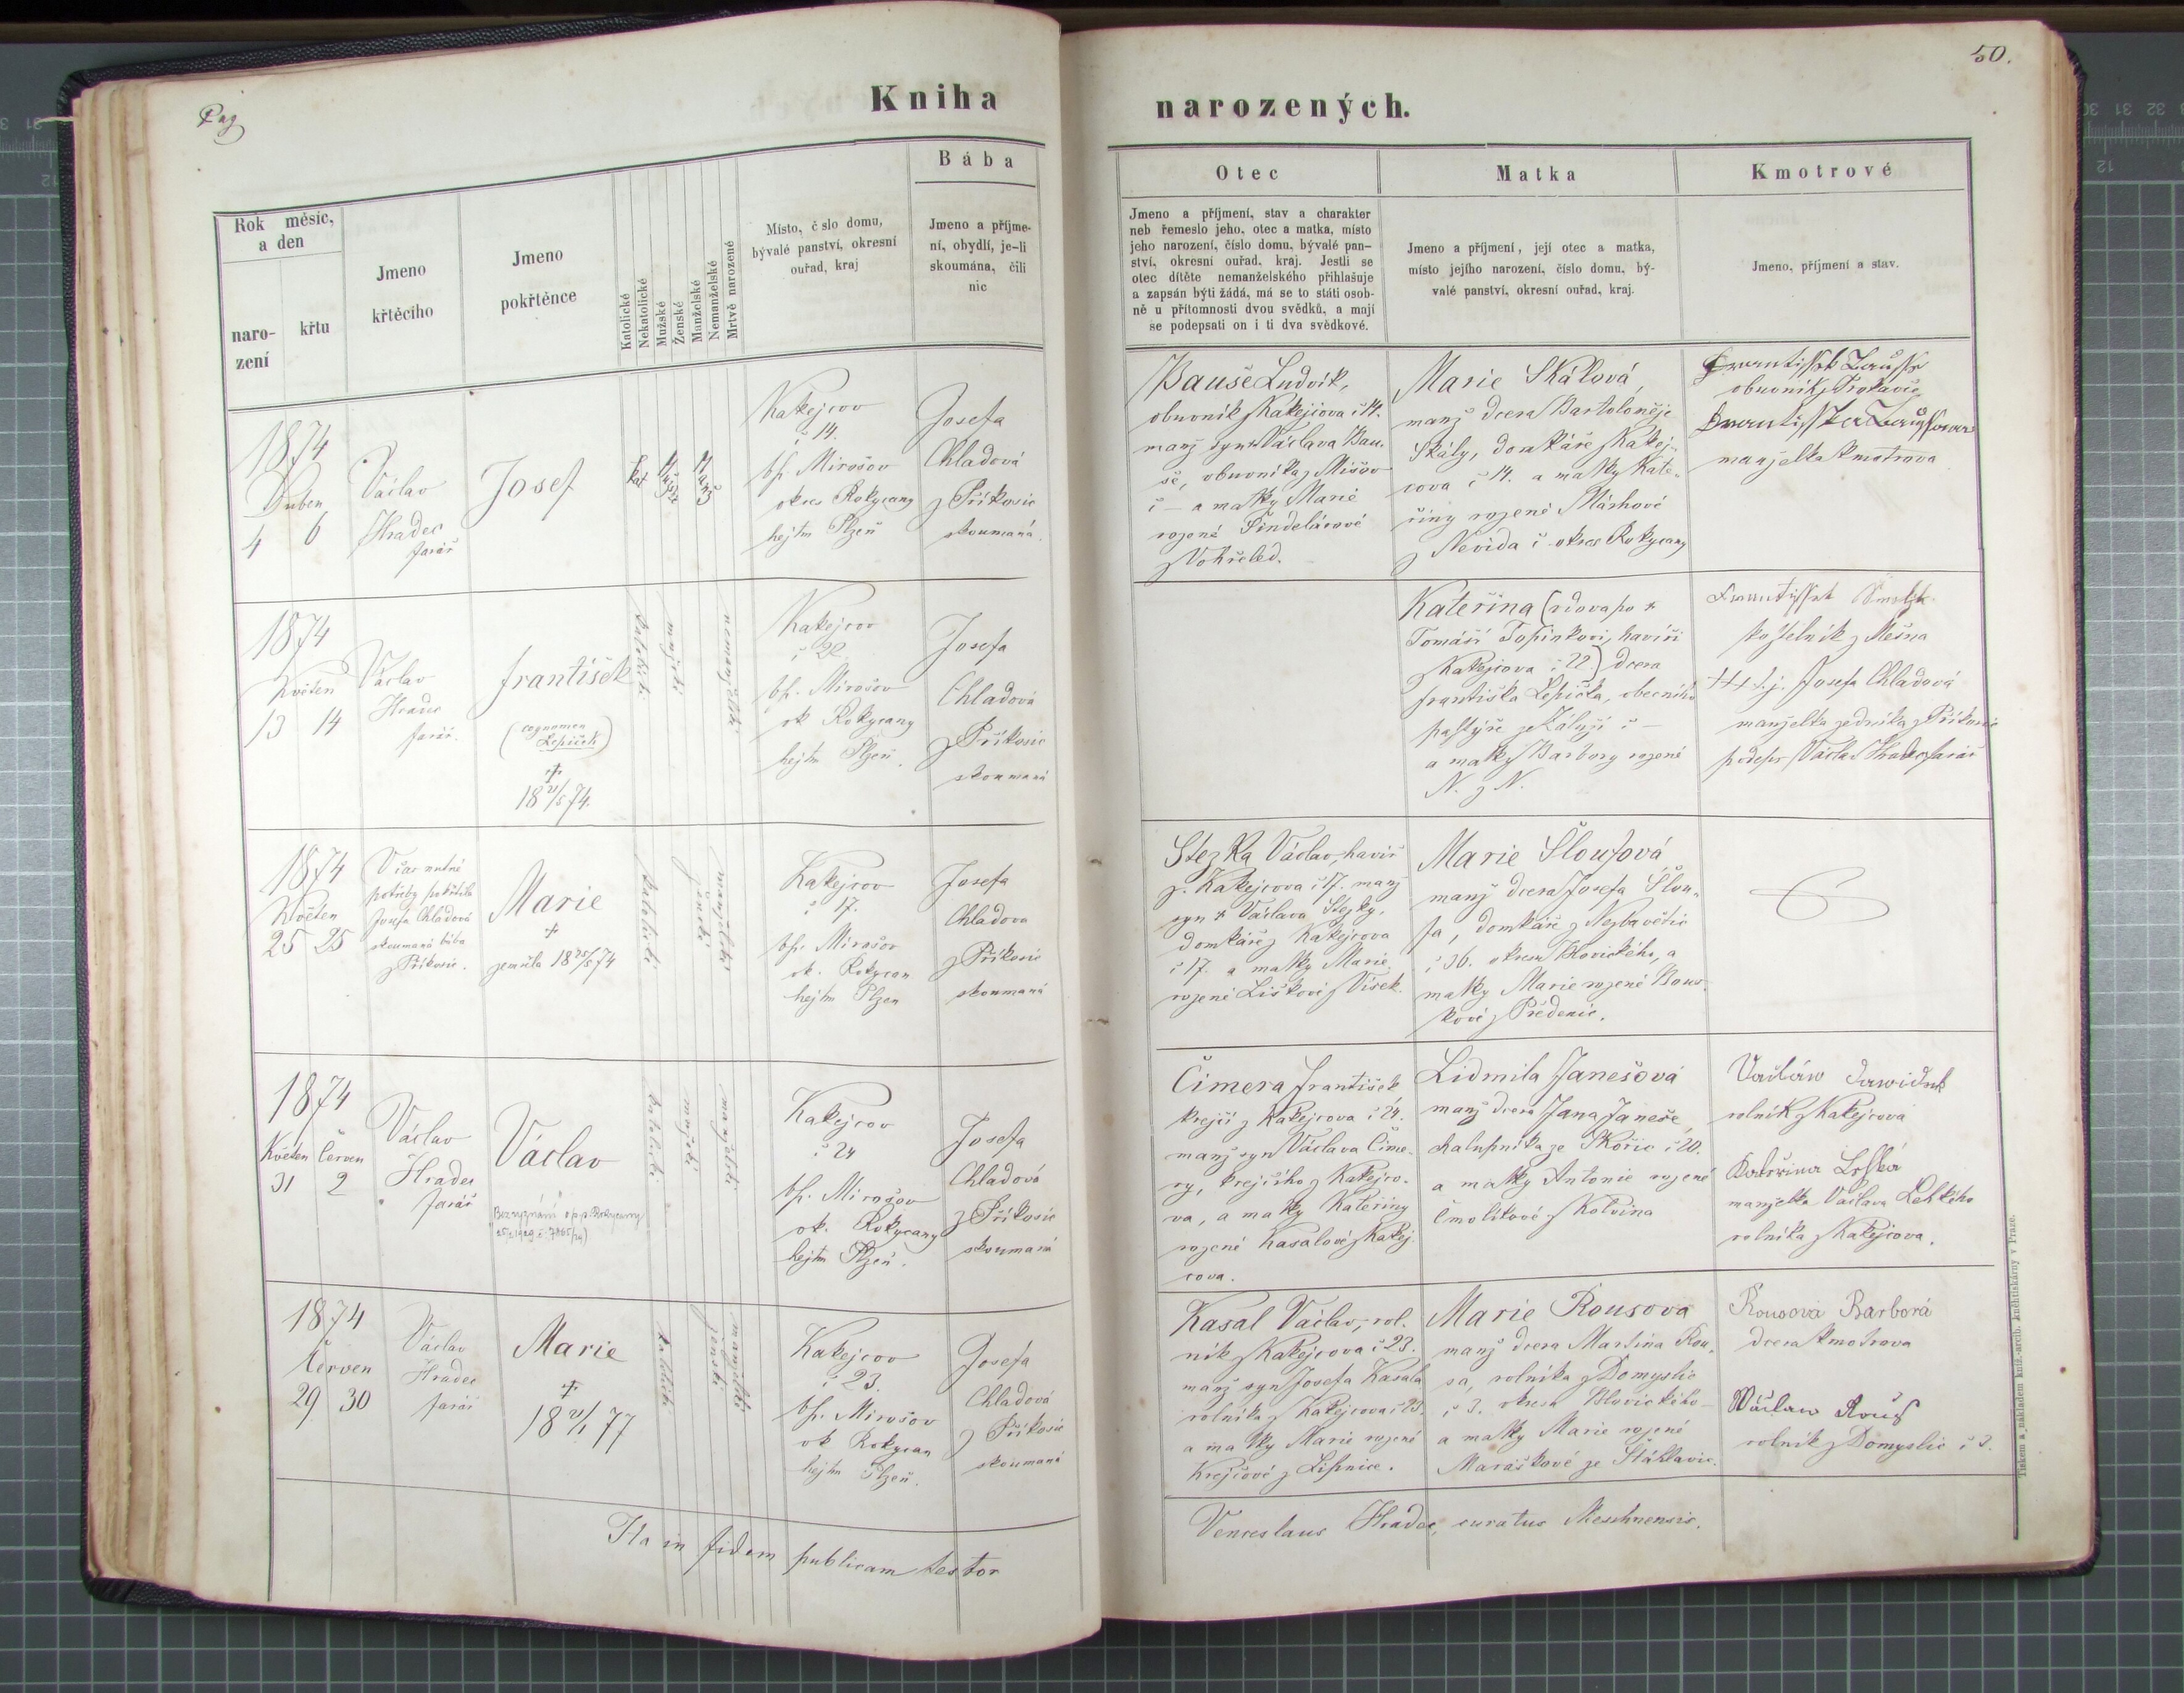 Pag
Kniha
narozených.
50.
Rok měsíc,
a den
naro-
zení
křtu
Jmeno
křtěcího
Jmeno
pokřtěnce
Katolické
Nekatolické
Mužské
Ženské
Manželské
Nemanželské
Mrtvě narozené
Místo, č slo domu,
bývalé panství, okresní
ouřad, kraj
Bába
Jmeno a příjme-
ní, obydlí, je-li
skoumána, čili
nic
Otec
Jmeno a příjmení, stav a charakter
neb řemeslo jeho, otec a matka, místo
jeho narození, číslo domu, bývalé pan-
ství, okresní ouřad, kraj. Jestli se
otec dítěte nemanželského přihlašuje
a zapsán býti žádá, má se to státi osob-
ně u přítomnosti dvou svědků, a mají
se podepsati on i ti dva svědkové.
Matka
Jmeno a příjmení, její otec a matka,
místo jejího narození, číslo domu, bý-
valé panství, okresní ouřad, kraj.
Kmotrové
Jmeno, příjmení a stav.
1874
Duben
4 6
Václav
Hradec
farář
Josef
kat
Mužs
Manž
Kakejcov
č 14.
bp. Mirošov
okres Rokycany
hejtm Plzeň
Josefa
Chladová
z Příkosic
skoumaná.
Bauše Ludvík,
obuvník z Kakejcova č 14.
manž syn Václava Bau-
še, obuvníka z Mišov
č — a matky Marie
rozené Šindelářové
z Vokřeled.
Marie Skálová,
manž dcera Bartoloměje
Skály, domkáře z Kakej-
cova č 14. a matky Kate-
řiny rozené Márhové
z Nevida č okres Rokycany
obuvník z
manželka kmotrova
1874
Květen
13 14
Václav
Hradec
farář.
František
(cognomen
Lepiček)
†
18 21/5 74.
katolické
mužské
nemanželské
Kakejcov
č 22
bp. Mirošov
ok Rokycany
hejtm Plzeň.
Josefa
Chladová
z Příkosic
skoumaná
Kateřina (vdova po †
Tomáši Topinkovi, havíři
z Kakejcova č 22.) dcera
Františka Lepička, obecního
pastýře ze Záluží č —
a matky Barbory rozené
N. z N.
kostelník z Mešna
††† J. j. Josefa Chladová
manželka zedníka z Příkosic
podeps Václav Hradec farář
1874
Květen
25 25
V čas nutné
potřeby pokřtila
Josefa Chladová
skoumaná bába
z Příkosic.
Marie
†
zemřela 18 25/5 74
katolické
ženské
manželské
Kakejcov
č 17.
bp. Mirošov
ok. Rokycan
hejtm Plzen
Josefa
Chladova
z Příkosic
skoumaná
Stezka Václav, havíř
z. Kakejcova č 17. manž
syn † Václava Stezky,
domkáře z Kakejcova
č 17. a matky Marie
rozené Liškové z Vísek.
Marie Šloufová
manž dcera Josefa Šlou-
fa, domkáře z Nezbavětic
č 36. okresu Blovického, a
matky Marie rozené Bous-
kové z Předenic.
1874
Květen Červen
31 2
Václav
Hradec
farář
Václav
katolické
mužské
manželské
Kakejcov
č 24
bp. Mirošov
ok. Rokycany
hejtm Plzeň.
Josefa
Chladová
z Příkosic
skoumaná
Čimera František
krejčí z Kakejcova č 24.
manž syn Václava Čime-
ry, krejčího z Kakejco-
va, a matky Kateřiny
rozené Kasalové z Kakej
cova.
Lidmila Janešová
manž dcera Jana Janeše,
chalupníka ze Skořic č 20.
a matky Antonie rozené
Smolíkové z Kolvína
Václáw Dawídek
rolník z Kakejcova
Kateřina
manželka Václava Lehkého
rolníka z Kakejcova.
1874
Červen
29 30
Václav
Hradec
farář
Marie
†
18 21/1 77
katolické
ženské
manželské
Kakejcov
č 23.
bp. Mirošov
ok Rokycan
hejtm Plzeň.
Josefa
Chladová
z Příkosic
skoumaná
Kasal Václav, rol-
ník z Kakejcova č 23.
manž syn Josefa Kasala
rolníka z Kakejcova č 23.
a matky Marie rozené
Krejčové z Lipnice.
Marie Rousova
manž dcera Martina Rou-
sa, rolníka z Domyslic
č 3. okresu Blovického
a matky Marie rozené
Maraškové ze Šťáhlavic.
Rousová Barborá
dcera kmotrova
Wáclaw Rouš
rolník z Domyslic č 3.
Ita in fidem publicam testor
Venceslaus Hradec, curatus Meschnensis.
Tiskem a nákladem kníž.-arcib. knihtiskárny v Praze.